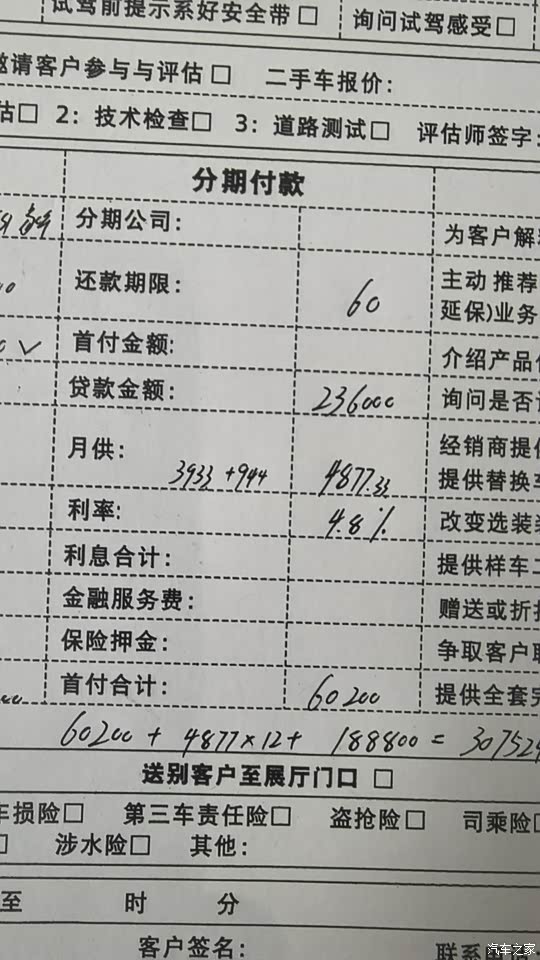 试驾前提示系好安全带□ 询问试驾感受□
邀请客户参与与评估□ 二手车报价:
估□ 2: 技术检查□ 3: 道路测试□ 评估师签字:
分期付款
分期公司: 为客户解
还款期限: 60 主动推荐
延保)业务
首付金额: 介绍产品
贷款金额: 236000 询问是否
月供: 3933+944 4877.33 经销商提
提供替换车
利率: 4.8% 改变选装
利息合计: 提供样车二
金融服务费: 赠送或折
保险押金: 争取客户联
首付合计: 60200 提供全套完
60200 + 4877×12 + 188800 = 307524
送别客户至展厅门口 □
车损险□ 第三车责任险□ 盗抢险□ 司乘险□
涉水险□ 其他:
至 时 分
客户签名: 联系
汽车之家